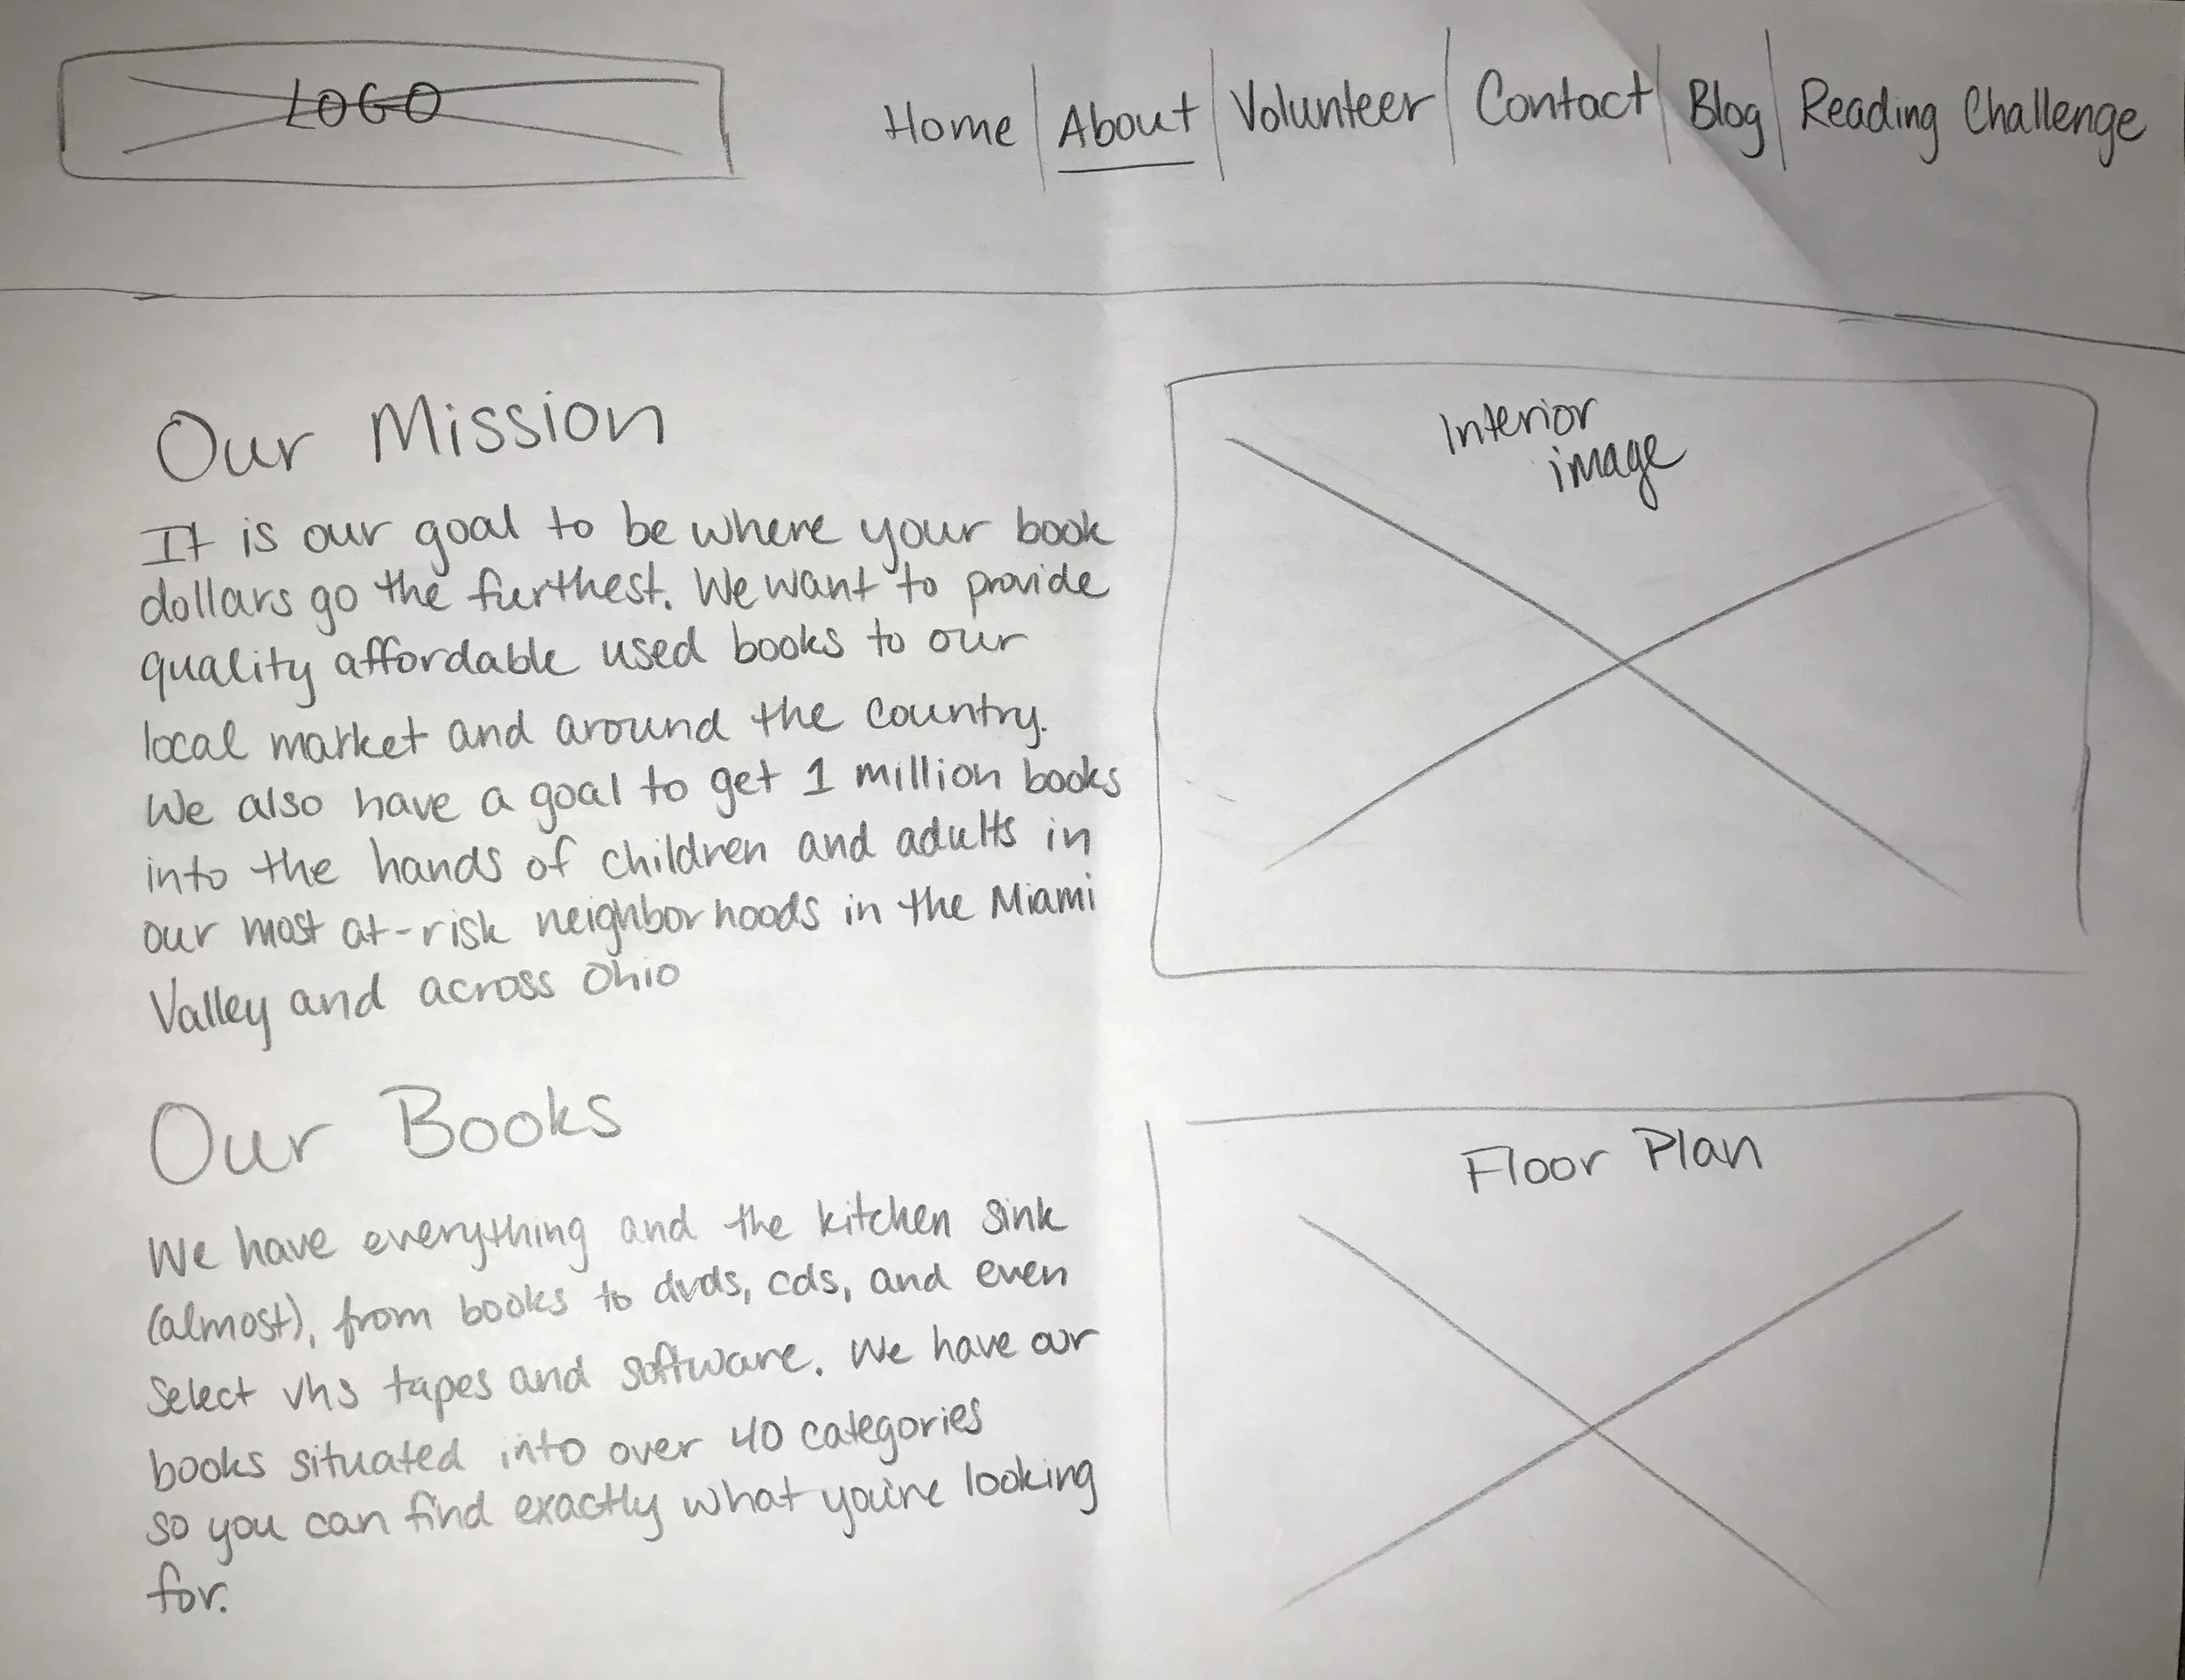 LOGO
Home | About | Volunteer | Contact | Blog | Reading Challenge
Our Mission
It is our goal to be where your book
dollars go the furthest. We want to provide
quality affordable used books to our
local market and around the country.
We also have a goal to get 1 million books
into the hands of children and adults in
our most at-risk neighborhoods in the Miami
Valley and across Ohio
Interior
image
Our Books
We have everything and the kitchen sink
(almost), from books to dvds, cds, and even
select vhs tapes and software. We have our
books situated into over 40 categories
so you can find exactly what you're looking
for.
Floor Plan